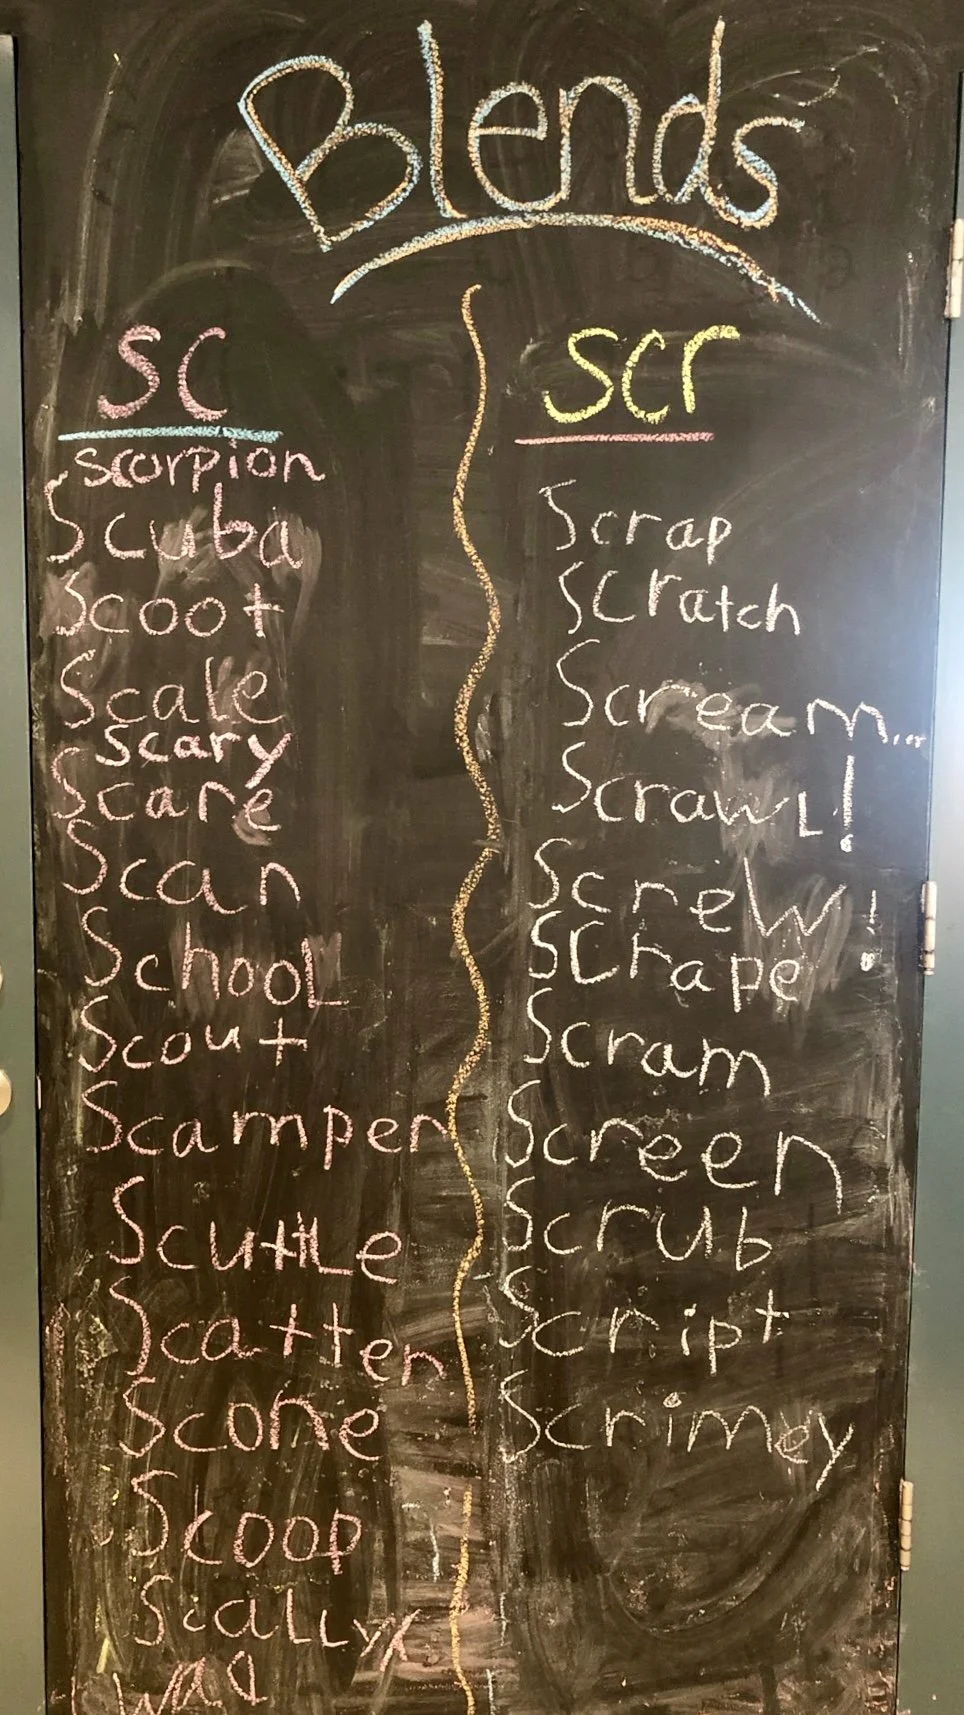 Blends
sc
scorpion
Scuba
Scoot
Scale
scary
Scare
Scan
School
Scout
Scamper
Scuttle
Scatter
Scone
Scoop
Scally
wag
scr
Scrap
Scratch
Scream...
Scrawl!
Screw!
Scrape
Scram
Screen
Scrub
Script
Scrimey